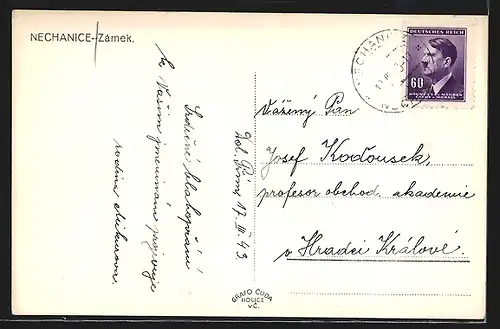 NECHANICE--Zámek.
DEUTSCHES REICH
60
BÖHMEN UND MÄHREN
ČECHY A MORAVA
NECHANICE
Dol. Přím 17. III. 43.
Srdečné blahopřání
k Vašim jmeninám projevuje
rodina
Vážený Pan
Josef Koďousek,
profesor obchod. akademie
v Hradci Králové.
GRAFO ČUDA
HOLICE
V.Č.